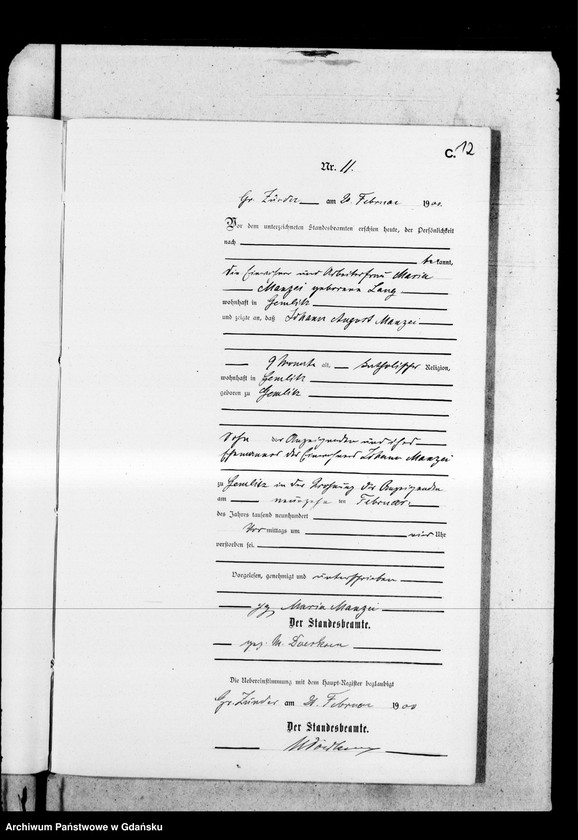 C. 12
Nr. 11.
Gr. Zünder am 20. Februar 1900.
Vor dem unterzeichneten Standesbeamten erschien heute, der Persönlichkeit
nach
bekannt,
die Einwohner und Arbeiterfrau Maria
Manzei geborene Lang
wohnhaft in Gemlitz
und zeigte an, daß Johann August Manzei
9 Monate alt, katholischer Religion,
wohnhaft in Gemlitz
geboren zu Gemlitz
Sohn der Anzeigenden und ihres
Ehemannes des Einwohners Johann Manzei
zu Gemlitz in der Wohnung der Anzeigenden
am neunzehn ten Februar
des Jahres tausend neunhundert
Vor mittags um vier Uhr
verstorben sei.
Vorgelesen, genehmigt und unterschrieben
gez. Maria Manzei
Der Standesbeamte.
gez. M.
Die Uebereinstimmung mit dem Haupt-Register beglaubigt
Gr. Zünder am 20. Februar 1900
Der Standesbeamte.
Archiwum Państwowe w Gdańsku